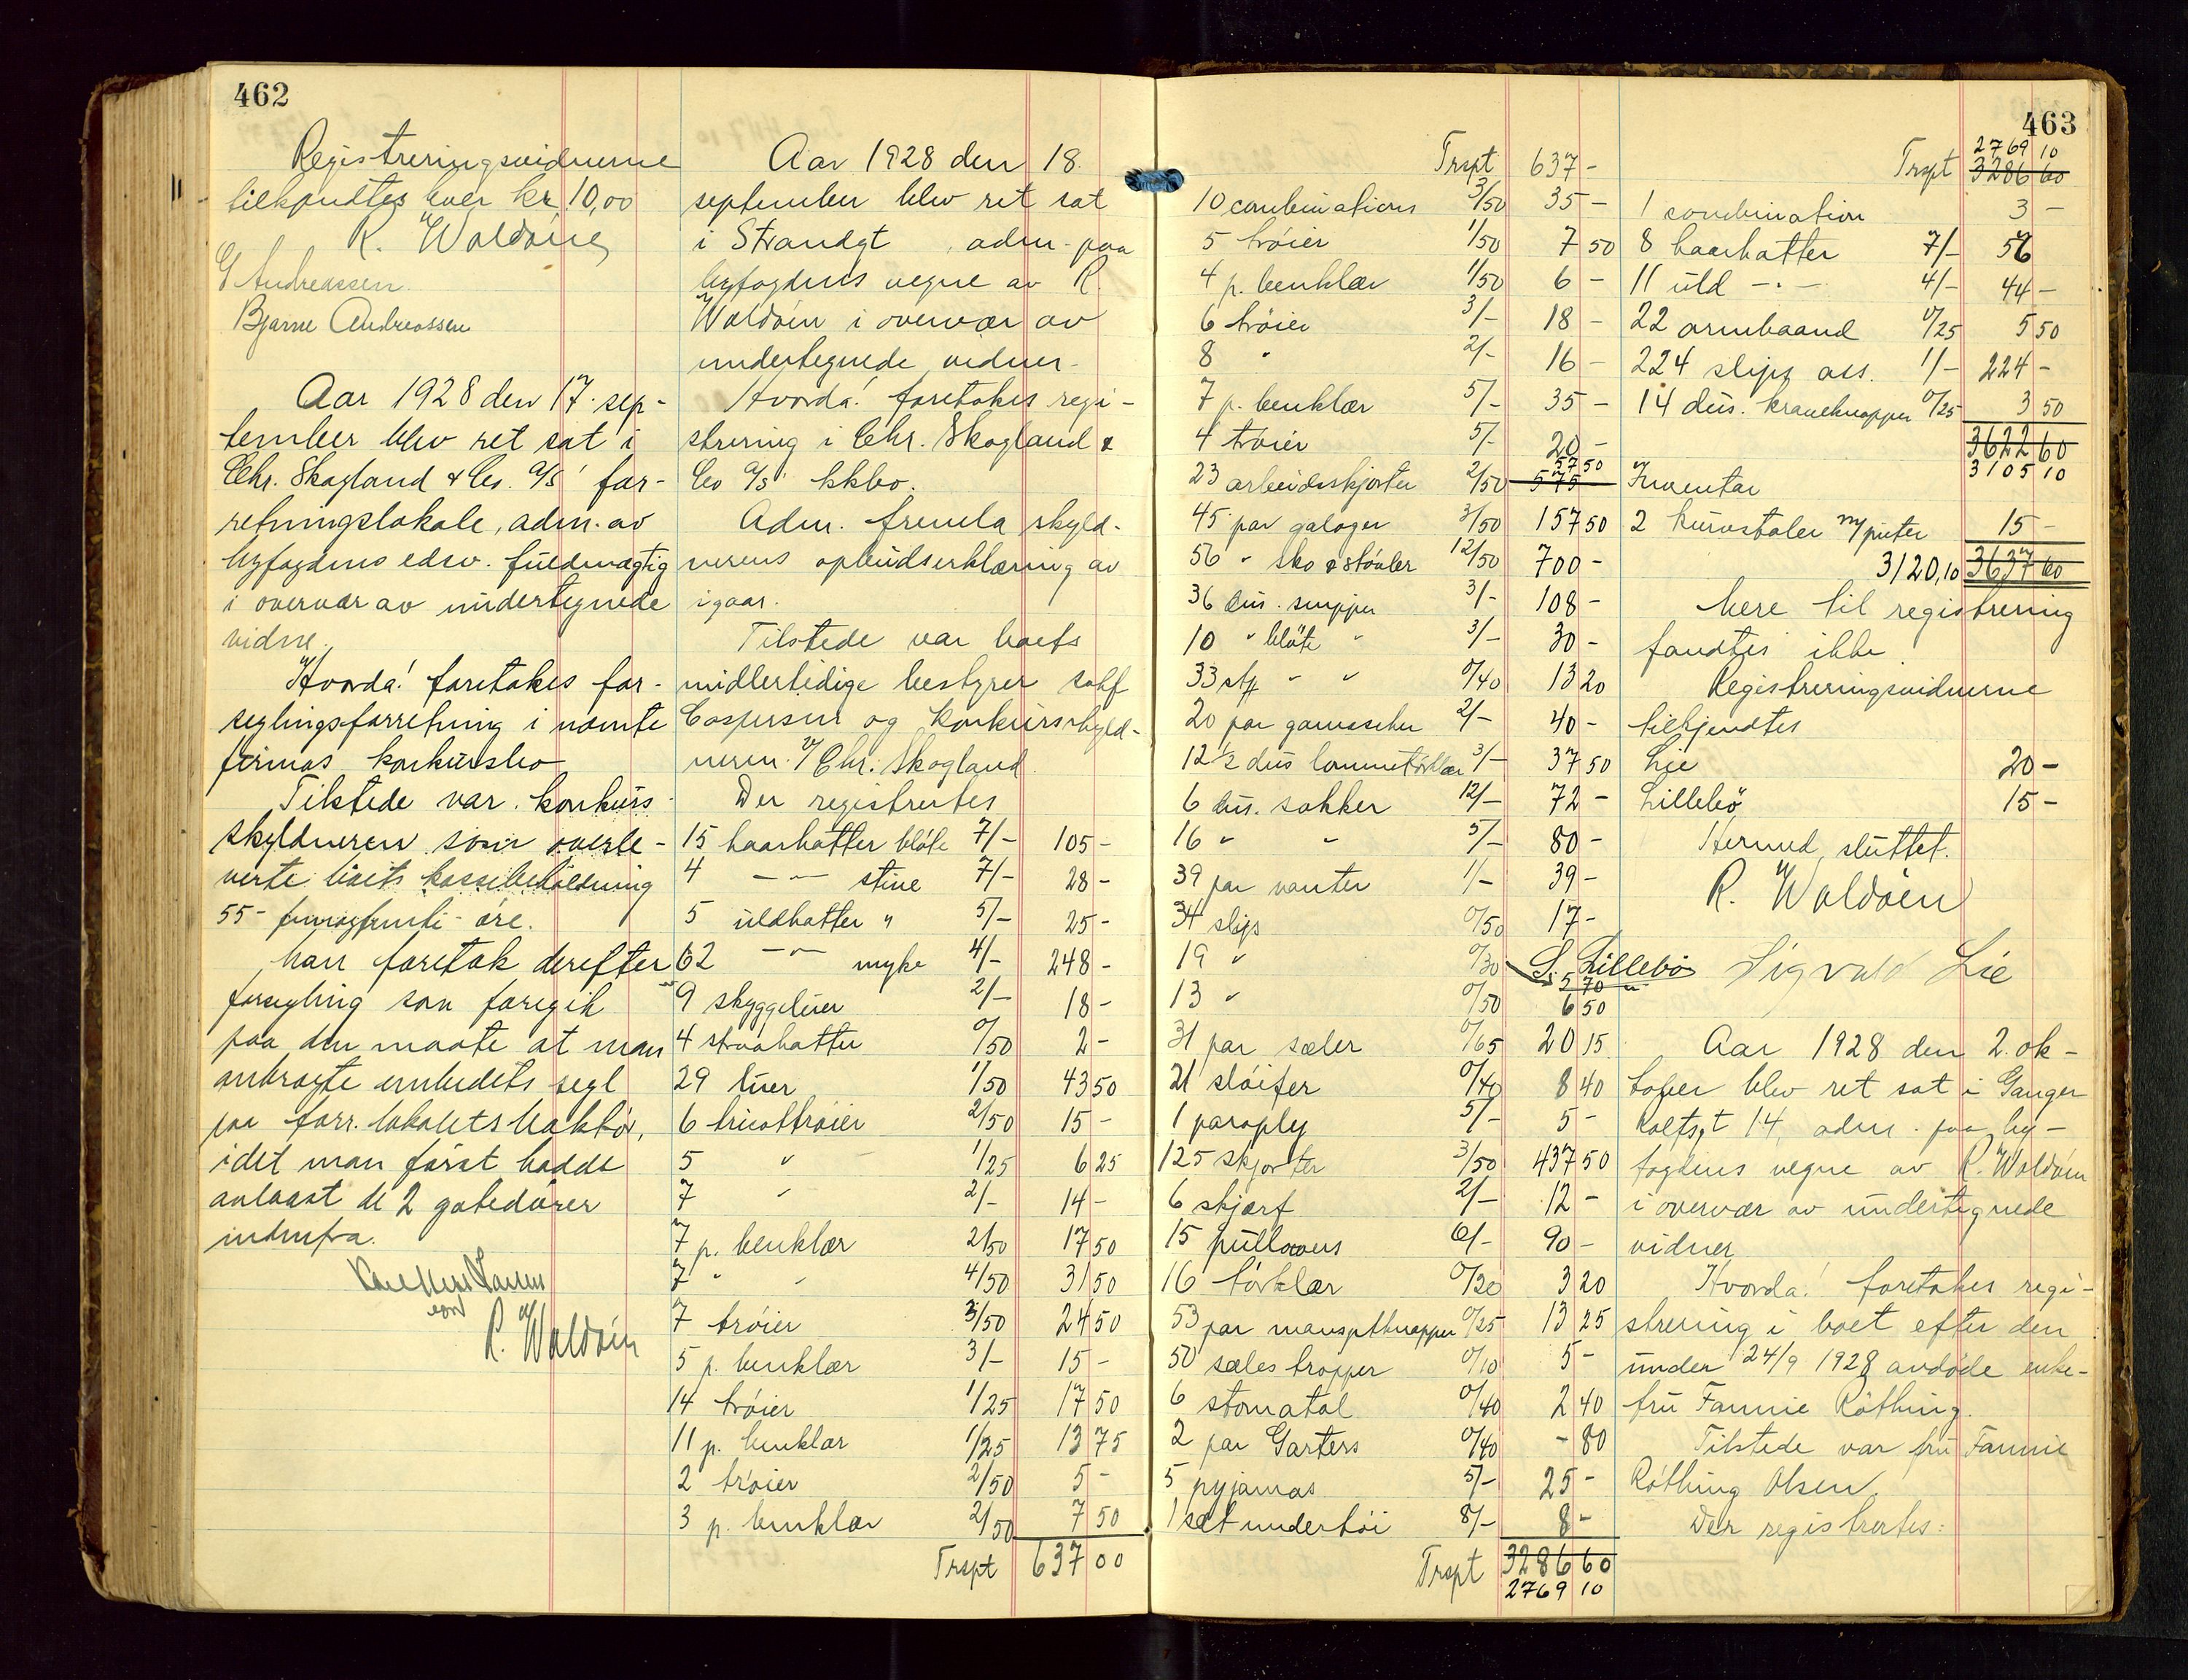 462
Registreringsvidnerne
tilkjendtes hver kr 10,00
R. Waldöin
G Andreassen.
Bjarne Andreassen
Aar 1928 den 17. sep-
tember blev ret sat i
Chr. Skagland & Co. A/S' for-
retningslokale, adm. av
byfogdens edsv. fuldmægtig
i overvær av undertegnede
vidne.
Hvorda! foretokes for-
seglingsforretning i nævnte
firmas konkursbo
Tilstede var konkurs-
skyldneren som overle-
verte boets kassebeholdning
55 - femogfemti - öre.
Man foretok derefter
forsegling som foregik
paa den maate at man
anbragte embedets segl
paa forr. lokalets bakdör,
idet man först hadde
avlaast de 2 gatedörer
indenfra.
R. Waldöin
Aar 1928 den 18.
september blev ret sat
i Strandgt , adm. paa
byfogdens vegne av R.
Waldöin i overvær av
undertegnede vidner.
Hvorda! foretokes regi-
strering i Chr. Skagland &
Co A/S' kkbo.
Adm. fremla skyld-
nerens opbudserklæring av
igaar.
Tilstede var boets
midlertidige bestyrer sakf
Caspersen og konkursskyld-
neren v/ Chr. Skagland
Der registrertes
15 haarhatter blöte 7/- 105 -
4 -"- stive 7/- 28 -
5 uldhatter " 5/- 25 -
62 -"- myke 4/- 248 -
9 skyggeluer 2/- 18 -
4 straahatter 0/50 2 -
29 luer 1/50 43 50
6 tricottröier 2/50 15 -
5 " 1/25 6 25
7 " 2/- 14 -
7 p. benklær 2/50 17 50
7 " " 4/50 31 50
7 tröier 3/50 24 50
5 p. benklær 3/- 15 -
14 tröier 1/25 17 50
11 p. benklær 1/25 13 75
2 tröier 2/50 5 -
3 p. benklær 2/50 7 50
Trspt 637 00
463
Trspt 637 -
10 combinations 3/50 35 -
5 tröier 1/50 7 50
4 p. benklær 1/50 6 -
6 tröier 3/- 18 -
8 " 2/- 16 -
7 p. benklær 5/- 35 -
4 tröier 5/- 20 -
57 50
23 arbeidsskjorter 2/50 575
45 par galoger 3/50 157 50
56 " sko & stövler 12/50 700 -
36 dus. snipper 3/- 108 -
10 " blöte " 3/- 30 -
33 stk " " 0/40 13 20
20 par gamascher 2/- 40 -
12 1/2 dus lommetörklær 3/- 37 50
6 dus. sokker 12/- 72 -
16 " " 5/- 80 -
39 par vanter 1/- 39 -
34 slips 0/50 17 -
19 " 0/30 5 70
13 " 0/50 6 50
31 par seler 0/65 20 15
21 slöifer 0/40 8 40
1 paraply 5/- 5 -
125 skjorter 3/50 437 50
6 skjerf 2/- 12 -
15 pullovers 6/- 90 -
16 törklær 0/20 3 20
53 par mansjetknapper 0/25 13 25
50 selestropper 0/10 5 -
6 stomatol 0/40 2 40
2 par Garters 0/40 - 80
5 pyjamas 5/- 25 -
1 sæt undertöi 8/- 8 -
Trspt 3286 60
2769 10
2769 10
Trspt 3286 60
1 combination 3 -
8 haarhatter 7/- 56
11 uld -"- 4/- 44 -
22 armbaand 0/25 5 50
224 slips ass. 1/- 224 -
14 dus. kraveknapper 0/25 3 50
3622 60
3105 10
Inventar
2 kurvstoler m/puter 15 -
3120,10 3637 60
Mere til registrering
fandtes ikke
Registreringsvidnerne
tilkjendtes
Lie 20 -
Lillebö 15 -
Hermed sluttet.
R. Waldöin
S. Lillebö Sigvald Lie
Aar 1928 den 2. ok-
tober blev ret sat i Ganger
Rolfsgt 14, adm. paa by-
fogdens vegne av R. Waldöin
i overvær av undertegnede
vidner
Hvorda! foretokes regi-
strering i boet efter den
under 24/9 1928 avdöde enke-
fru Fannie Röthing.
Tilstede var fru Fannie
Röthing Olsen.
Der registrertes: